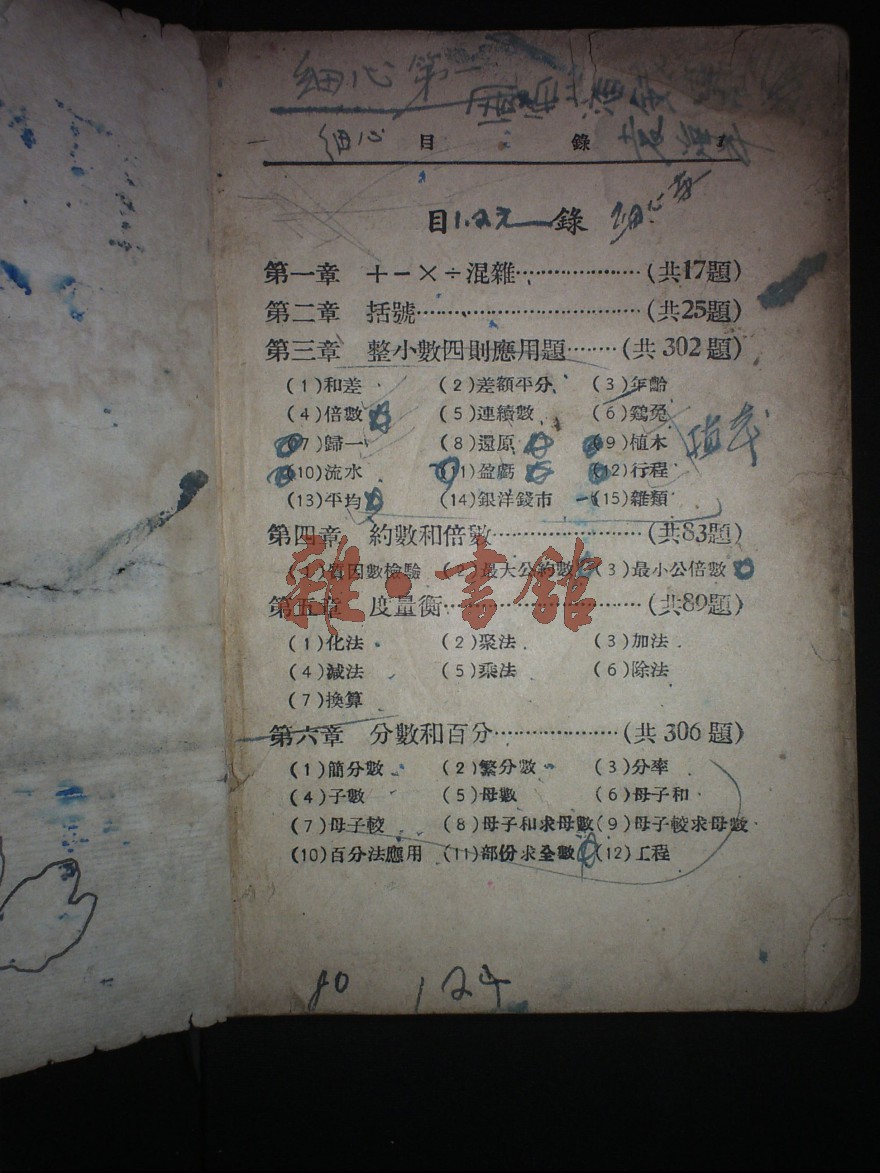 细心第一
细心 目 錄
目1.2元錄 细心
第一章 ＋－×÷混雜⋯⋯⋯⋯⋯⋯(共17題)
第二章 括號⋯⋯⋯⋯⋯⋯⋯⋯⋯⋯(共25題)
第三章 整小數四則應用題⋯⋯⋯(共302題)
(1)和差 (2)差額平分 (3)年齡
(4)倍數 (5)連續數 (6)鷄兔
(7)歸一 (8)還原 (9)植木
(10)流水 (11)盈虧 (12)行程
(13)平均 (14)銀洋錢市 (15)雜類
第四章 約數和倍數⋯⋯⋯⋯⋯⋯(共83題)
(1)質因數檢驗 (2)最大公約數 (3)最小公倍數
第五章 度量衡⋯⋯⋯⋯⋯⋯⋯⋯(共89題)
(1)化法 (2)聚法 (3)加法
(4)減法 (5)乘法 (6)除法
(7)換算
第六章 分數和百分⋯⋯⋯⋯⋯⋯(共306題)
(1)簡分數 (2)繁分數 (3)分率
(4)子數 (5)母數 (6)母子和
(7)母子較 (8)母子和求母數 (9)母子較求母數
(10)百分法應用 (11)部份求全數 (12)工程
80 124
雜·書館